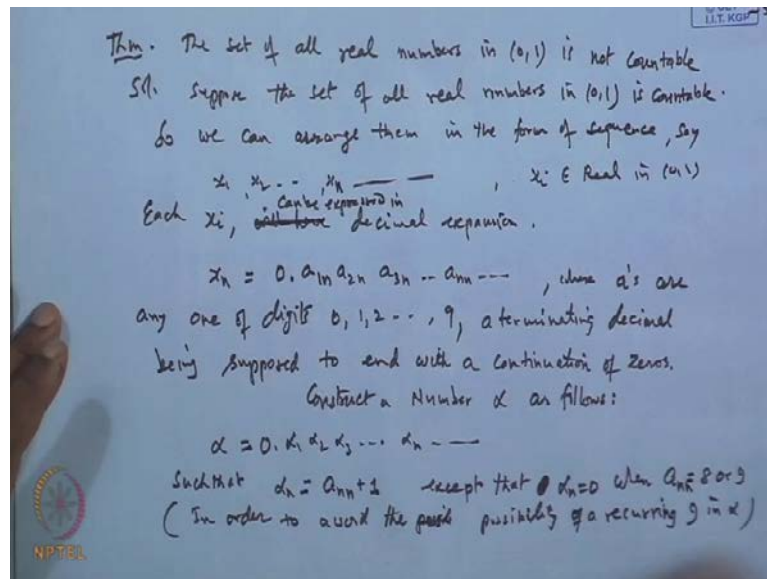 I.I.T. KGP
Thm. The set of all real numbers in (0,1) is not countable
Sol. Suppose the set of all real numbers in (0,1) is countable.
So we can arrange them in the form of sequence, say
x₁, x₂ - - , xₙ — — , xᵢ ∈ Real in (0,1)
Each xᵢ, can be expressed in decimal expansion.
xₙ = 0. a₁ₙ a₂ₙ a₃ₙ -- aₙₙ --- , where a's are
any one of digits 0, 1, 2 - - , 9, a terminating decimal
being supposed to end with a continuation of zeros.
Construct a Number α as follows:
α = 0. α₁ α₂ α₃ --- αₙ - —
Such that αₙ = aₙₙ + 1 except that αₙ = 0 when aₙₙ = 8 or 9
( In order to avoid the possibility of a recurring 9 in α )
NPTEL